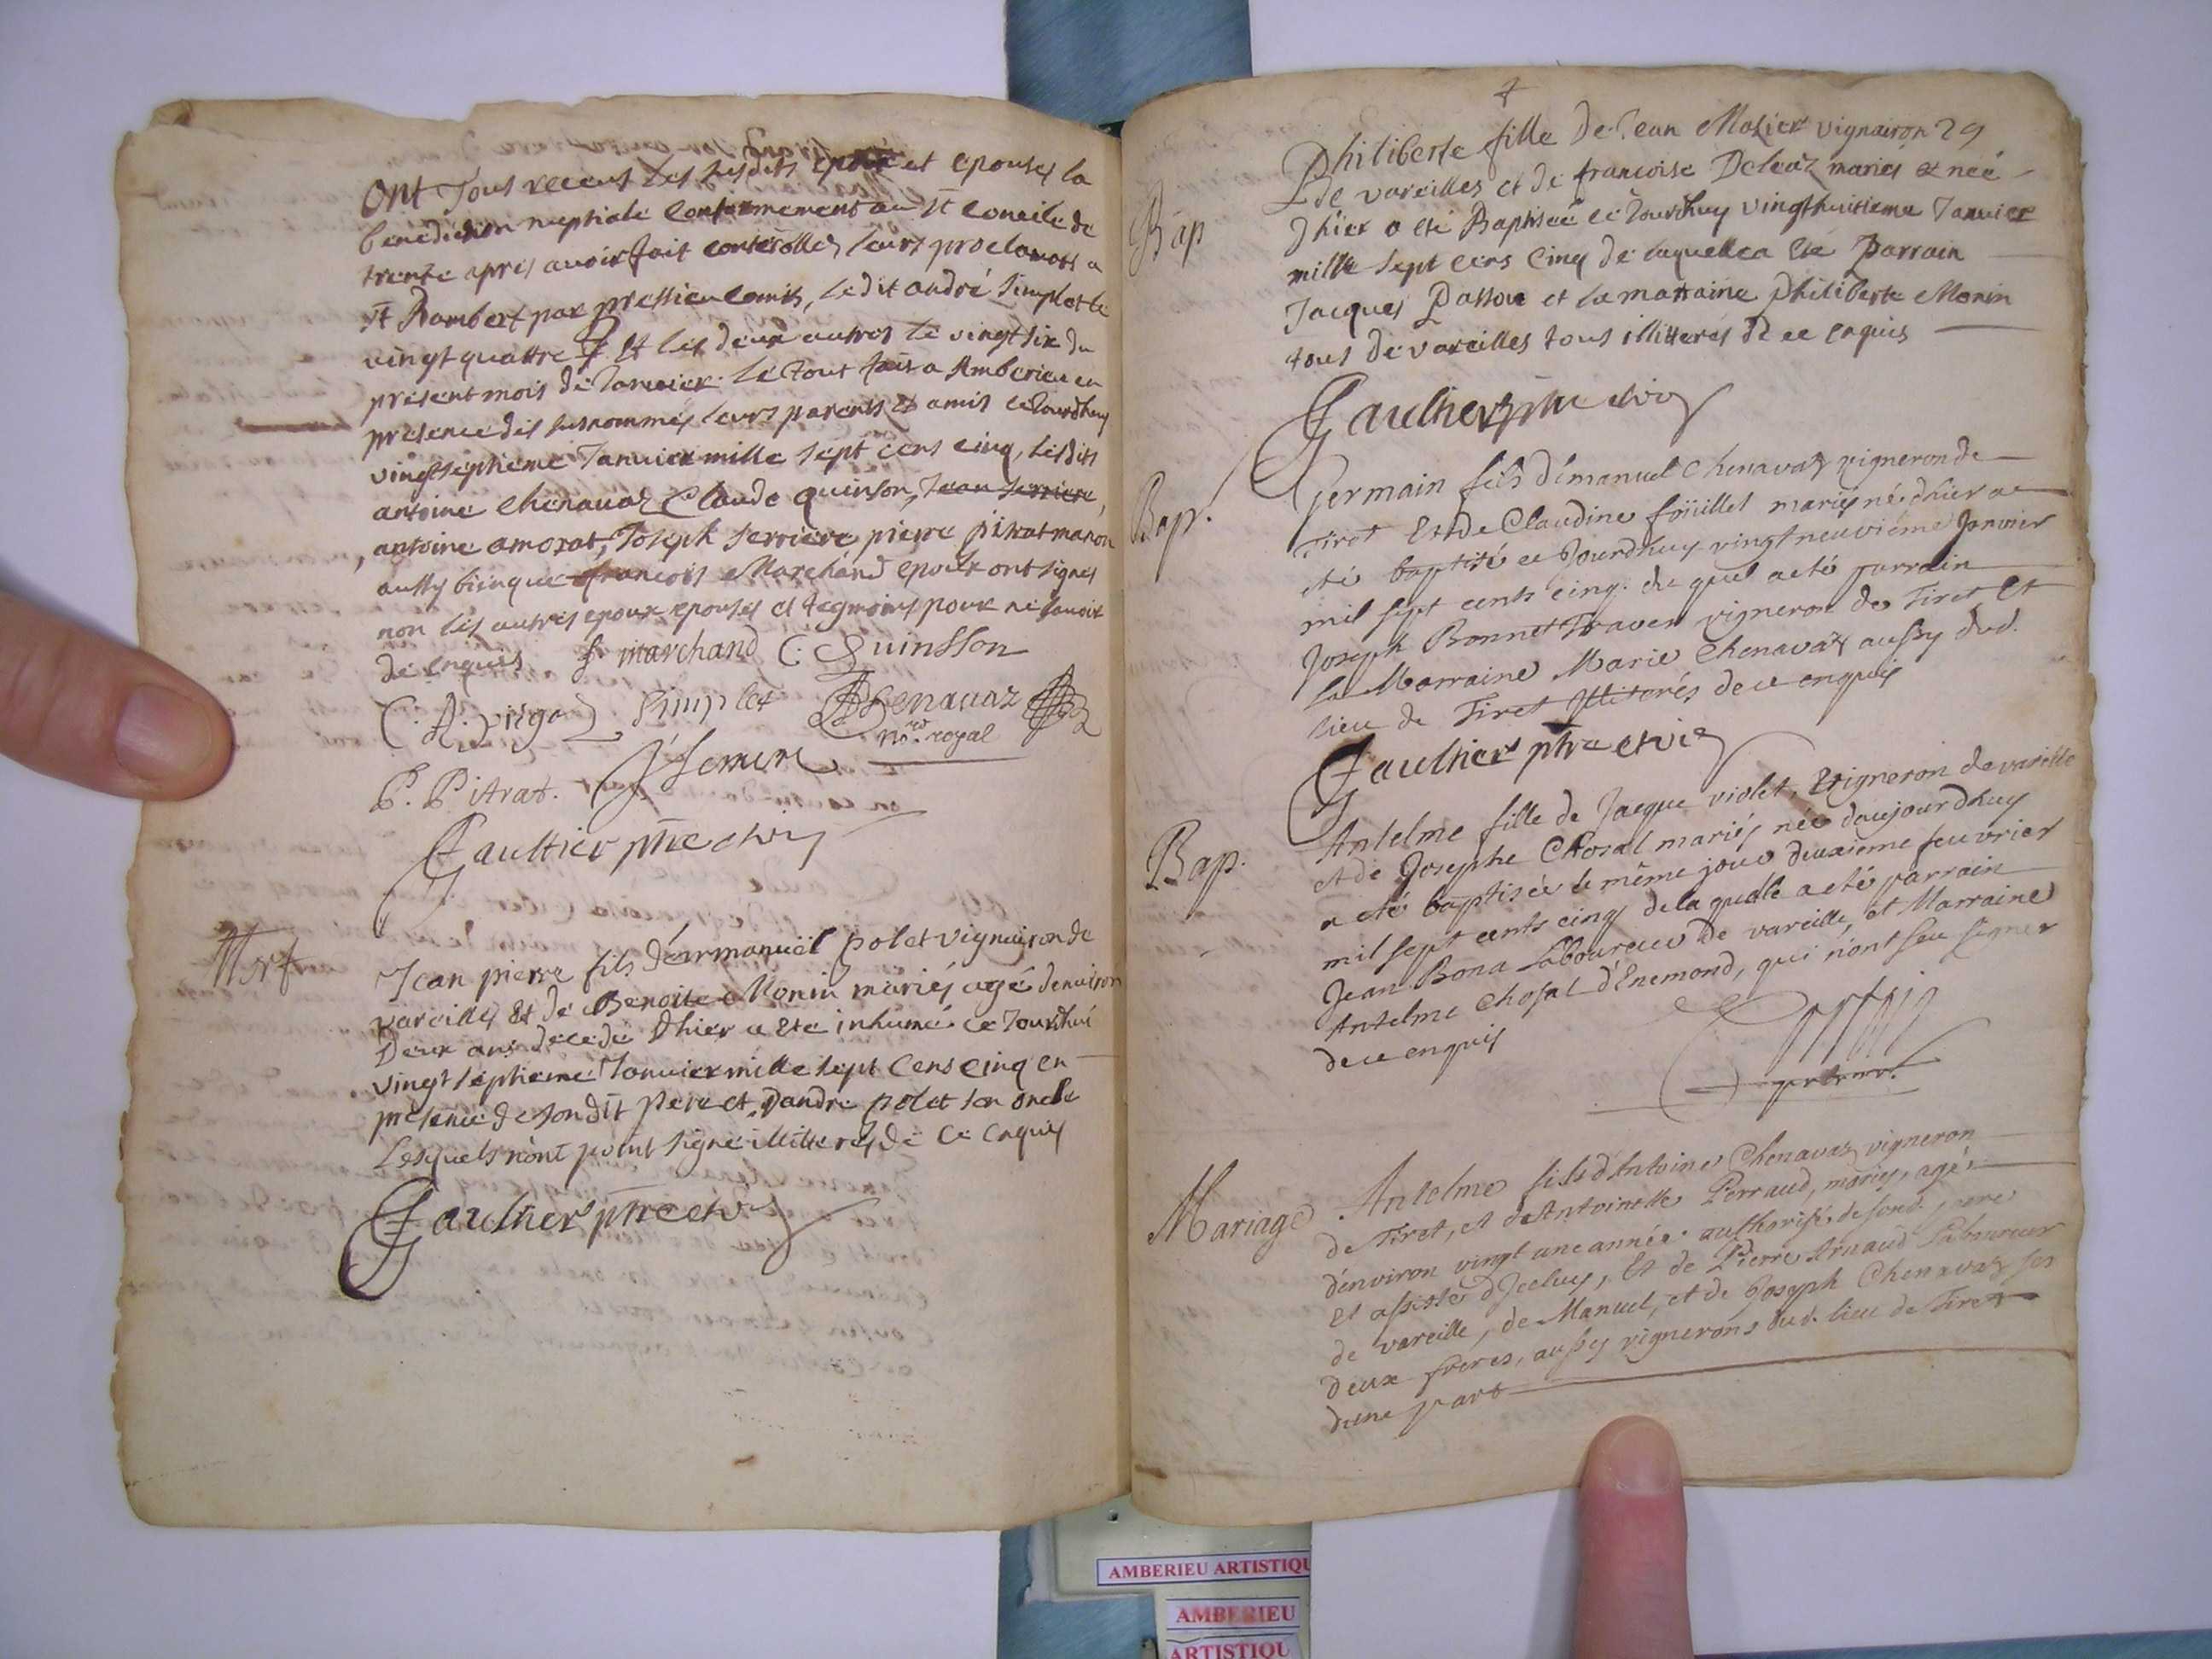 ont tous receus les susdits epoux et epouses la
benediction nuptiale conformement au st concile de
trente apres avoir fait controller leurs proclamats a
st Rambert par Messieu comis, ledit andré Simplet le
vingt quattre et les deux autres le vingt six du
present mois de Janvier. le tout fait a Amberieu en
presence des susnommés leurs parents et amis ce Jourdhuy
vingtseptieme Janvier mille sept cens cinq, lesdits
antoine Chenavaz Claude Quinson, Jean Serriere,
antoine amorat, Joseph Serriere pierre pitrat manon
aussy bienque francois Marchand epoux ont signes
non les autres epoux epouses et tesmoins pour ne savoir
de enquis f marchand C: Quinsson
C. A. Simplet Chenavaz
nore. royal
P. Pitrat. J Serriere
Gaultier ptre et vic
Mort
Jean pierre fils d'emmanuël polet vignairon de
vareilles et de Benoite Monin mariés agé denviron
Deux ans decedé Dhier a eté inhumé ce Jourdhui
vingt septieme Janvier mille sept Cens cinq en
presence de son dit pere et Dandré polet son oncle
Lesquels n'ont point signé illitteres de ce enquis
Gaultier ptre et vic
Bap
Philiberte fille de Jean Mozier vignairon 29
de vareilles et de francoise Deleaz mariés et neé
Dhier a eté Baptiseé ce Jourdhuy vingthuitieme Janvier
mille sept cens cinq de laquelle a eté Parrain
Jacques Passou et la marraine Philiberte Monin
tous de vareilles tous illitterés de ce enquis
Gaultier ptre et vic
Bap.
Germain fils d'émanuel Chenavaz vigneron de
Tiret Et de Claudine foüillet mariés né dhier a
eté baptisé ce Jourdhuy vingt neuviéme Janvier
mil sept cents cinq. du quel a eté parrain
Joseph Bonnet Traven vigneron de Tiret Et
la Marraine Marie Chenavaz aussy dud.
lieu de Tiret Illiterés de ce enquis
Gaultier ptre et vic
Bap.
Antelme fille de Jacque violet, vigneron de vareille
et de Josephe Chosal mariés née daujourdhuy
a eté baptisée le même jour deuxieme feuvrier
mil sept cents cinq de la quelle a eté parrain
Jean Bona Laboureur de vareille, et Marraine
Antelme Chosal d'Enemond, qui n'ont sceu signer
de ce enquis
Mariage
Antelme fils d'Antoine Chenavaz vigneron
de Tiret, et de Antoinette Perraud, mariés, agé
d'environ vingt une année. authorisé de sond. pere
Et assisté d'Jceluy, Et de Pierre Arnaud Laboureur
de vareille, de Manuel, et de Joseph Chenavaz ses
deux freres, aussy vignerons dud. lieu de Tiret
dune part
AMBERIEU ARTISTIQU
AMBERIEU
ARTISTIQU